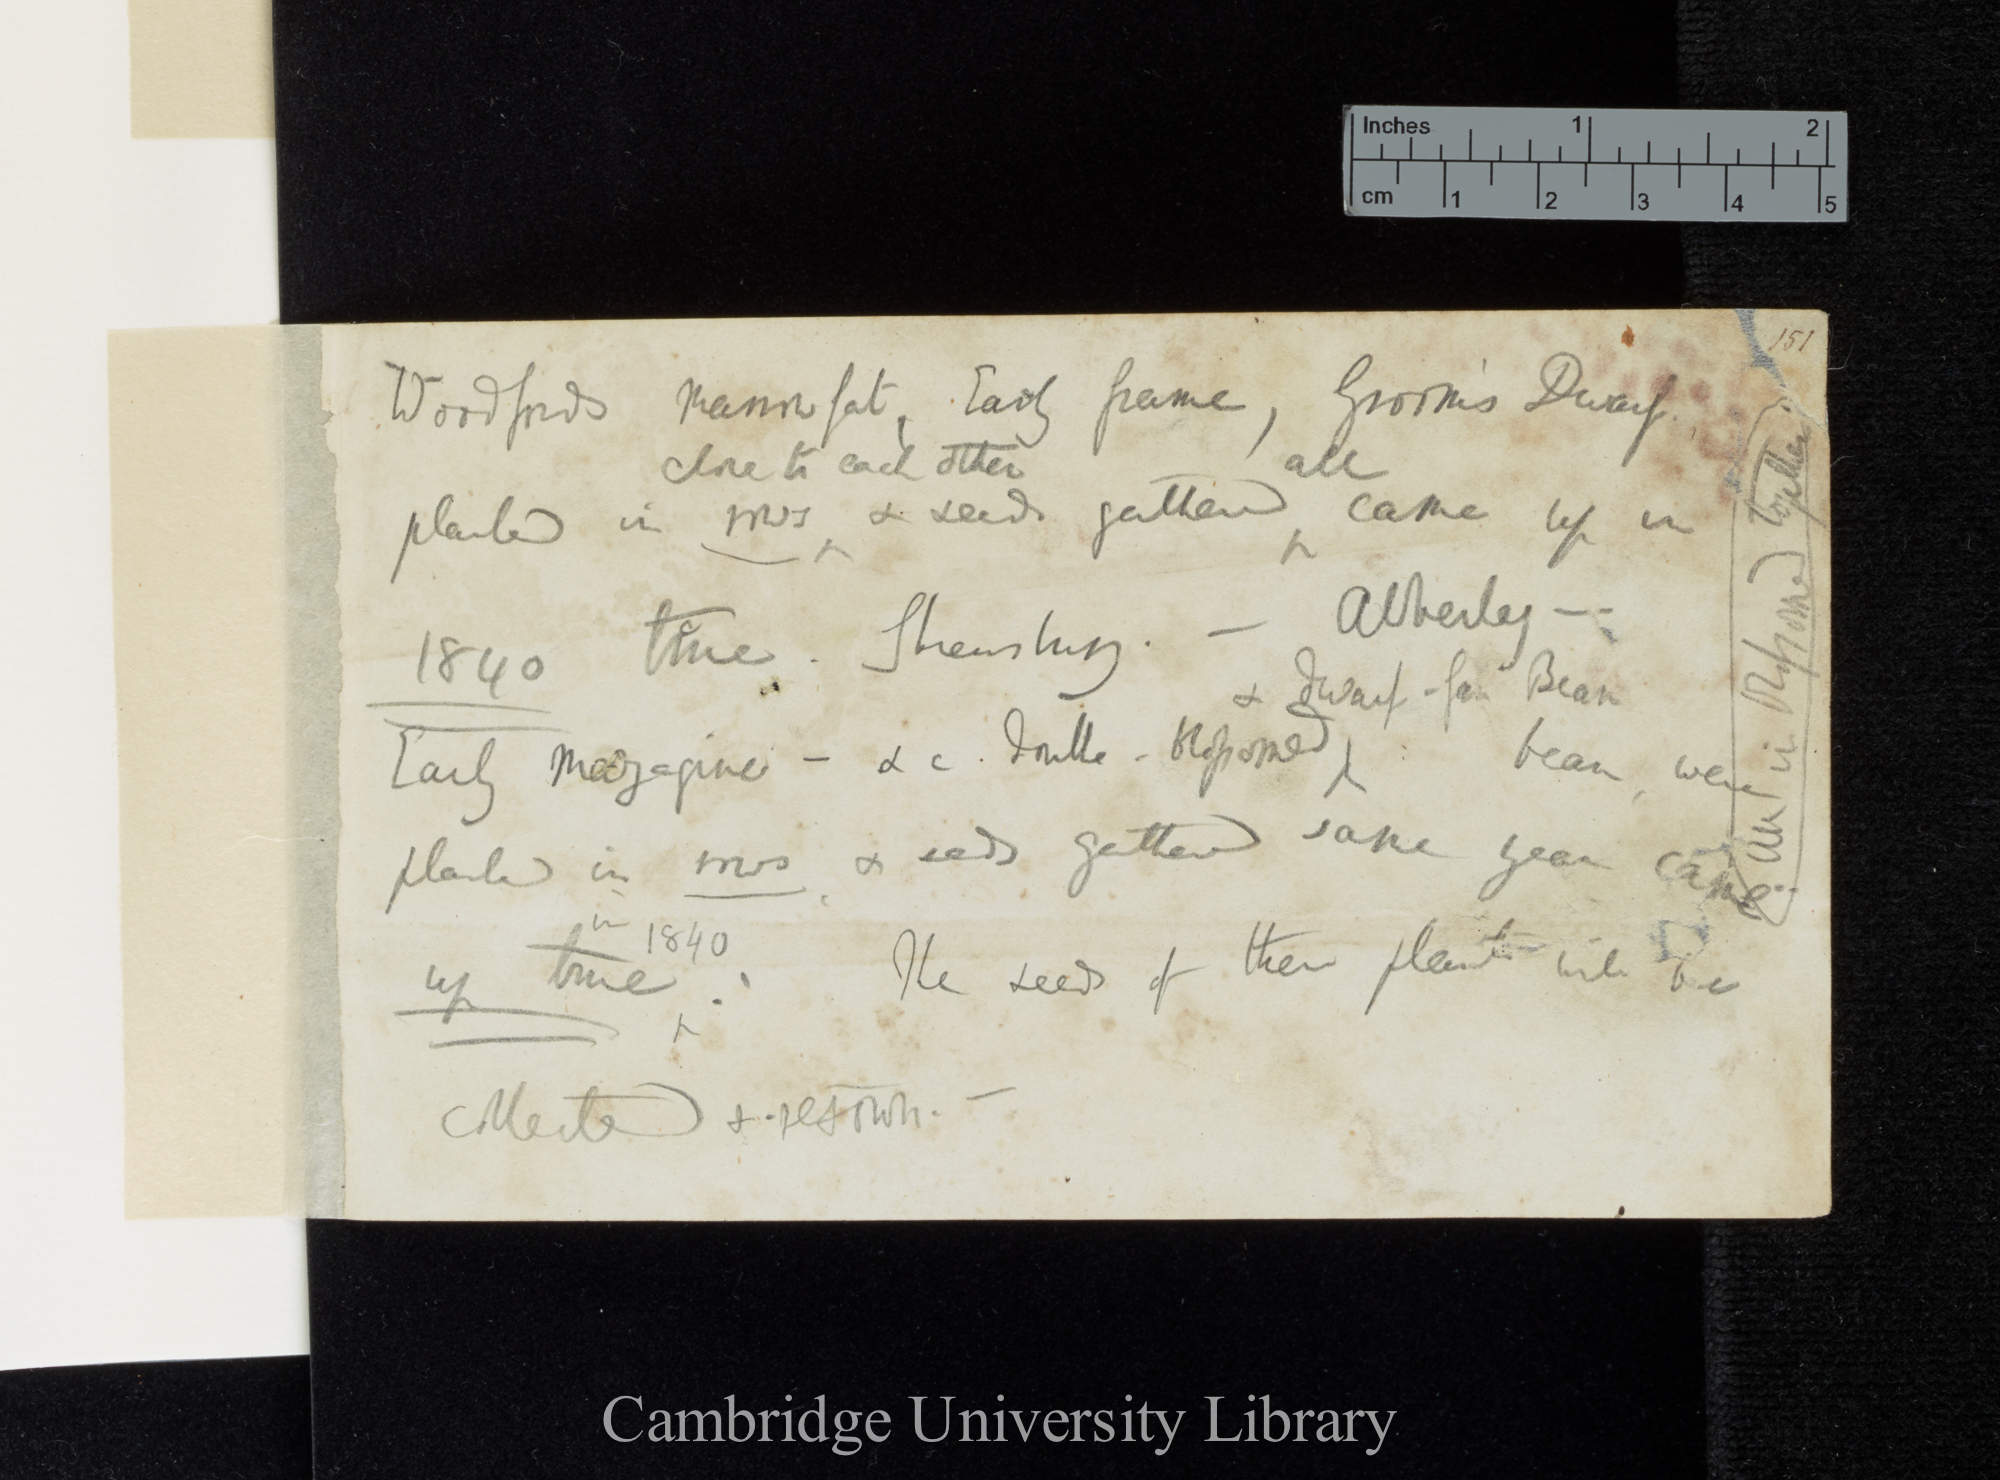 Inches 1 2
cm 1 2 3 4 5
151
Woodfords Marrowfat, Early frame, Groom's Dwarf.
close to each other all
planted in rows & seeds gathered came up in
1840 true. Shrewsbury. — Abberley —
& Dwarf-fan Bean
Early Mazagine — & c. double-blossomed bean, were
planted in rows & seeds gathered same year came
in 1840
up true. The seeds of these plants will be
collected & resown. —
all in blossomed together
Cambridge University Library